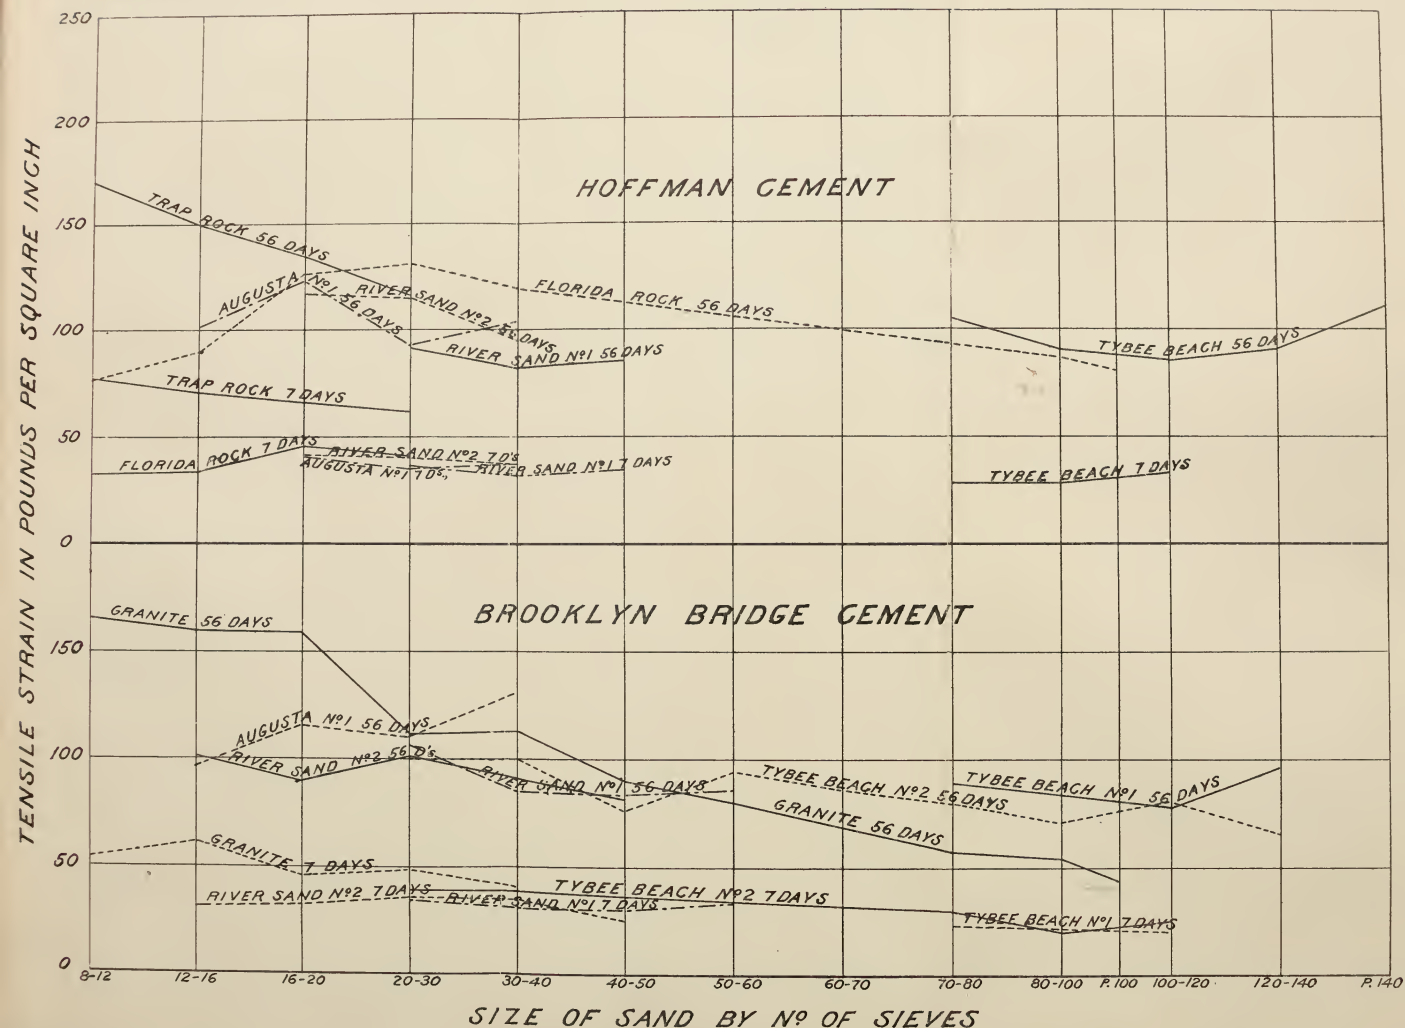 250
200
HOFFMAN CEMENT
TRAP ROCK 56 DAYS
150
AUGUSTA Nº1 56 DAYS
RIVER SAND Nº2 56 DAYS
FLORIDA ROCK 56 DAYS
100
RIVER SAND Nº1 56 DAYS
TYBEE BEACH 56 DAYS
TRAP ROCK 7 DAYS
50
FLORIDA ROCK 7 DAYS
RIVER SAND Nº2 7D's
AUGUSTA Nº1 7D's,
RIVER SAND Nº1 7 DAYS
TYBEE BEACH 7 DAYS
0
TENSILE STRAIN IN POUNDS PER SQUARE INCH
BROOKLYN BRIDGE CEMENT
GRANITE 56 DAYS
150
AUGUSTA Nº1 56 DAYS
100
RIVER SAND Nº2 56 D's
RIVER SAND Nº1 56 DAYS
TYBEE BEACH Nº2 56 DAYS
TYBEE BEACH Nº1 56 DAYS
GRANITE 56 DAYS
50
GRANITE 7 DAYS
RIVER SAND Nº2 7 DAYS
RIVER SAND Nº1 7 DAYS
TYBEE BEACH Nº2 7 DAYS
TYBEE BEACH Nº1 7 DAYS
0
8-12 12-16 16-20 20-30 30-40 40-50 50-60 60-70 70-80 80-100 P.100 100-120 120-140 P.140
SIZE OF SAND BY Nº OF SIEVES